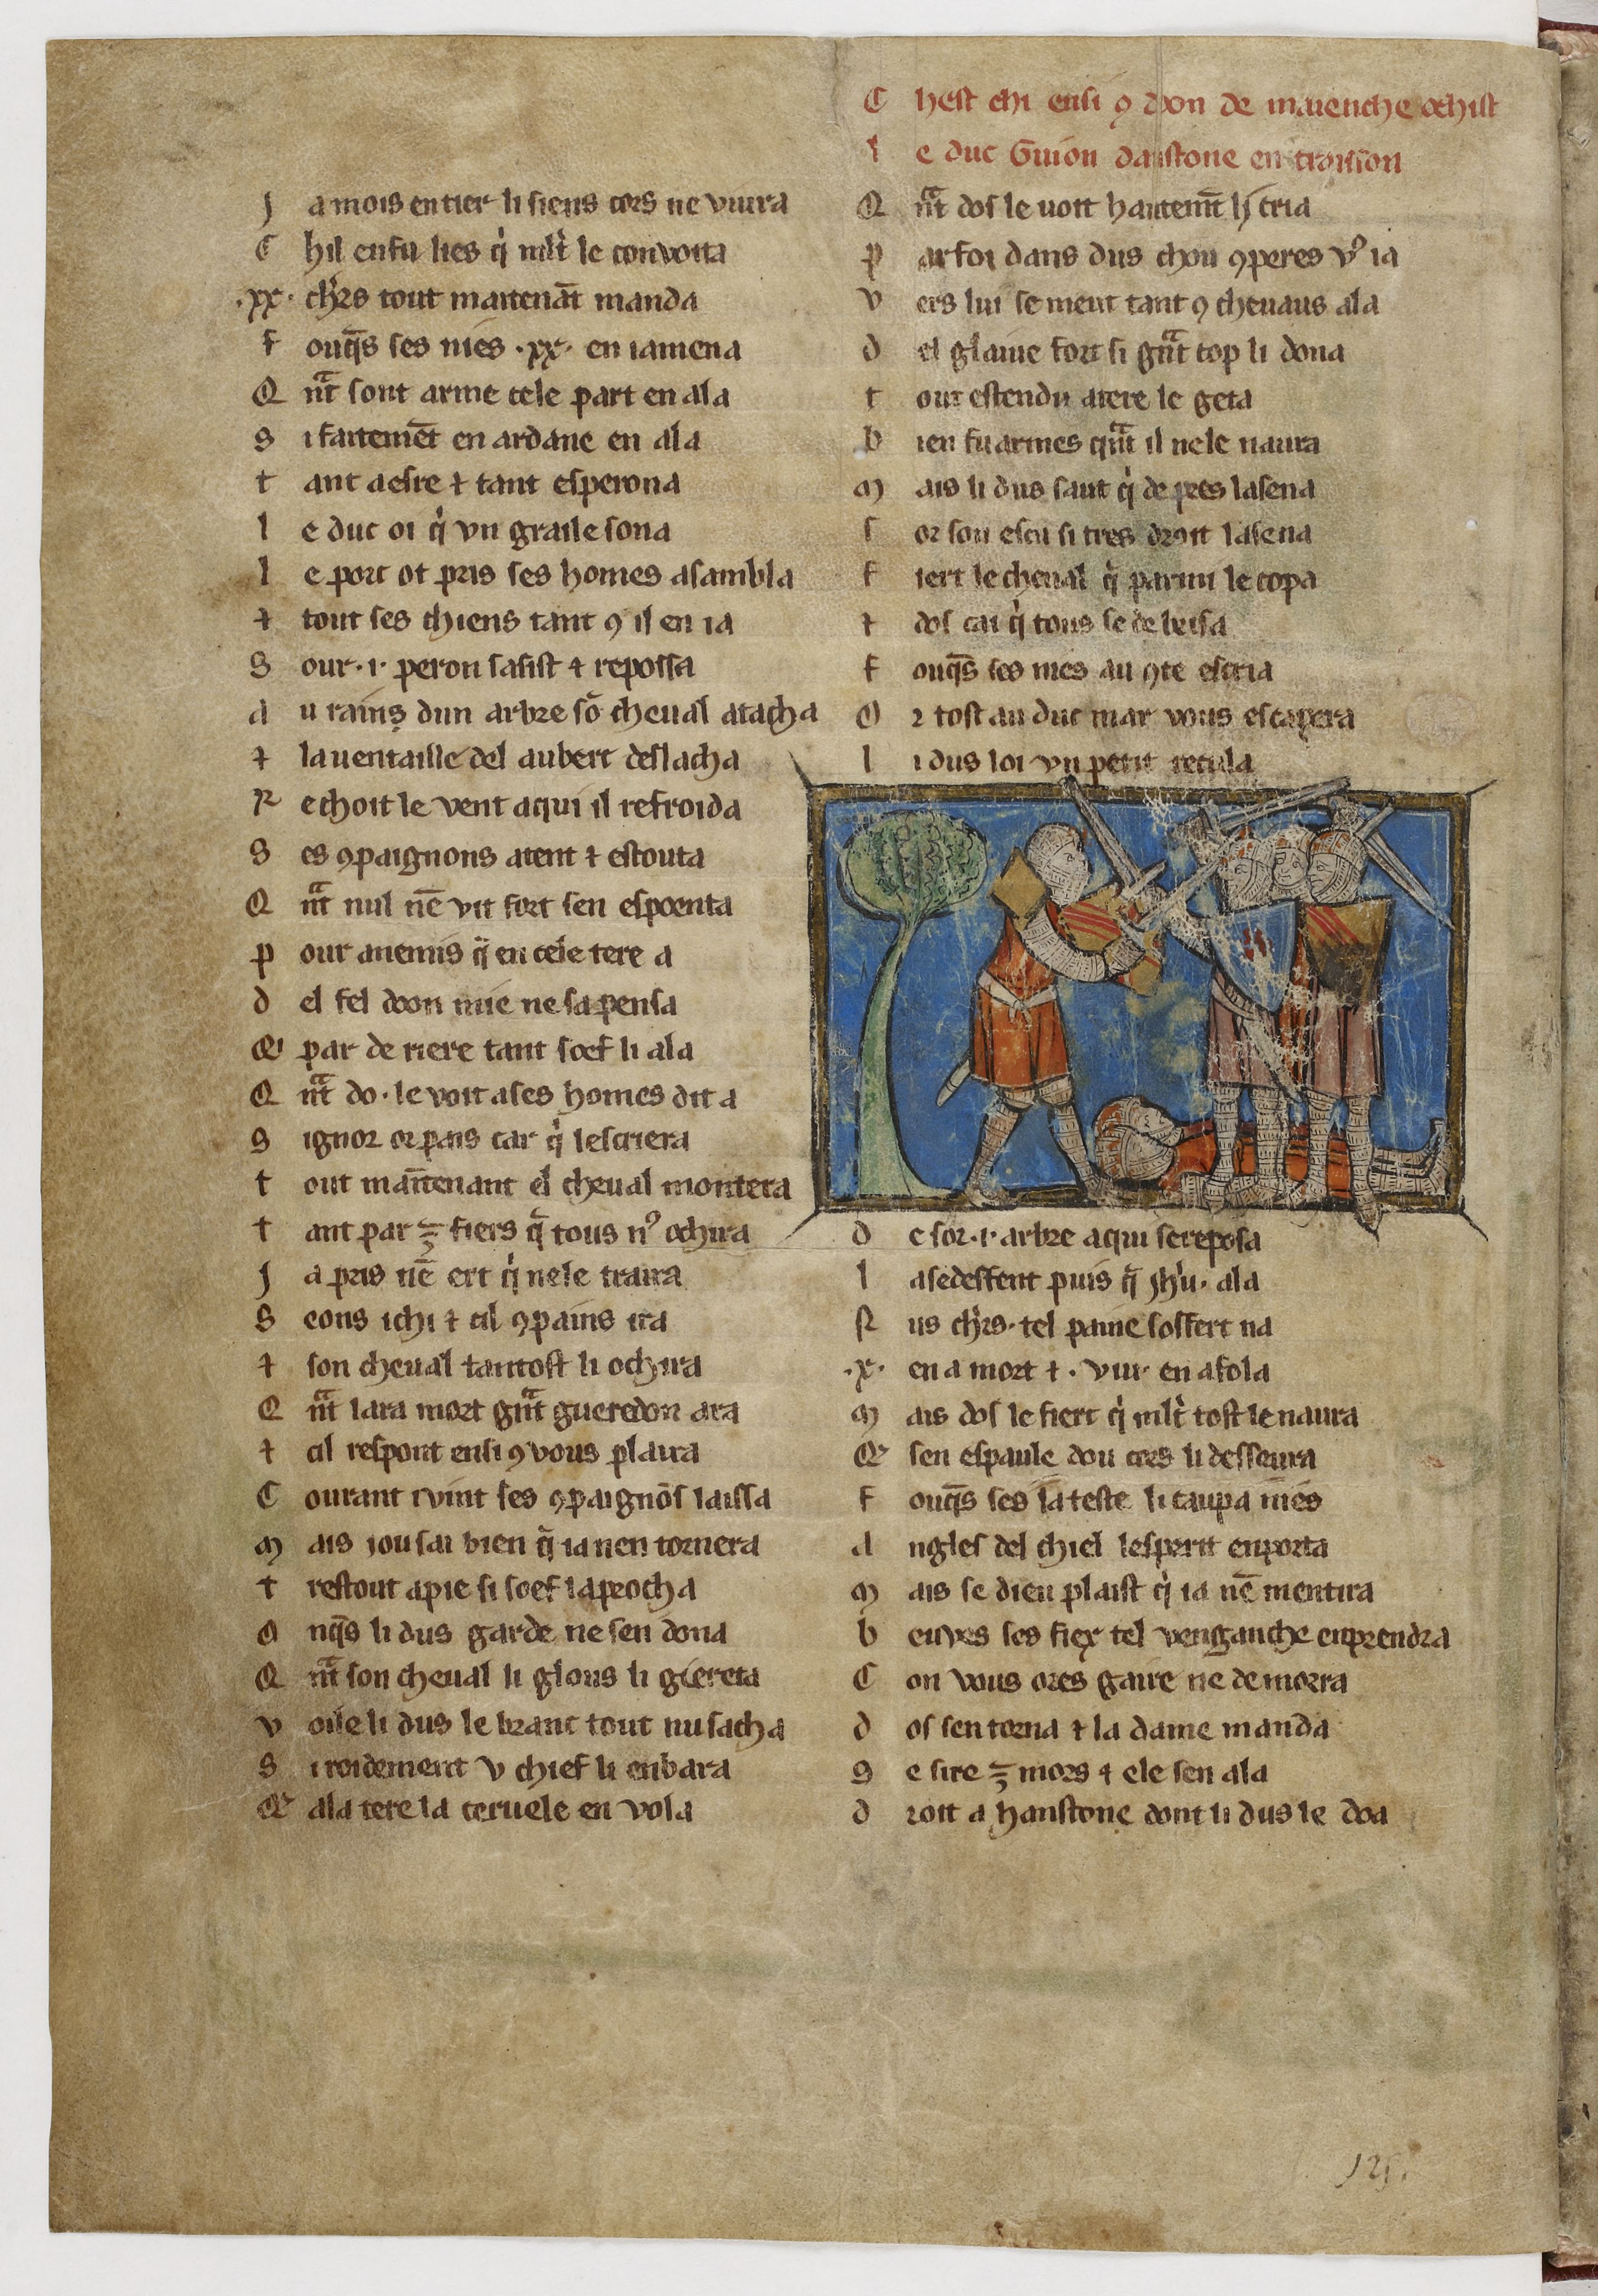 J a mois entier li siens cors ne viura
C hil en fu lies q̇ mlt̛ le convoita
.xx. ch̛rs tout maitenāt manda
F ouq̄s ses nies .xx. en i amena
Q nͣt sont arme cele part en ala
S i faitemēt en ardane en ala
T ant a esre ⁊ tant esperona
L e duc oi q̇ vn graile sona
L e porc ot pris ses homes asambla
⁊ tout ses chiens tant ꝯ il en i a
S our .i. peron sasist ⁊ repossa
A u rains dun arbre sō cheual atacha
⁊ la uentaille del aubert deslacha
R echoit le vent aqui il refroida
S es ꝯpaignons atent ⁊ escouta
Q nͣt nul nē vit fort sen espoenta
P our anemis q̇ en cele tere a
D el fel doon mie ne sa pensa
Q̛ par deriere tant soef li ala
Q nͣt do. le voit a ses homes dit a
S ignor or pais car q̇ lescriera
T out maītenant el cheual montera
T ant par ē fiers q̄ tous nꝰ ochira
J a pris nē ert q̇ nele traira
S eons ichi ⁊ cil ꝯpains ira
⁊ son cheual tantost li ochira
Q nͣt lara mort gnͣt gueredon ara
⁊ cil respont ensi ꝯ vous plaira
C ourant i vint ses ꝯpaignōs laissa
M ais iou sai bien q̄ ia nen tornera
T restout a pie si soef laprocha
O nq̄s li dus garde ne sen dona
Q nͣt son cheual li glous li giereta
V oile li dus le branc tout nu sacha
S i roidement v chief li enbara
Q̛ a la tere la ceruele en vola
C hest chi ensi ꝯ doon de maienche ochist
l e duc Guion danstone en traison
Q nͣt dos le uoit hautemt̄ li cria
P ar foi dans dus chou ꝯperes vꝰ ia
V ers lui se meut tant ꝯ cheuaus ala
D el glaiue fort si gnͣt cop li dona
T out estendu a tere le geta
B ien fu armes qnͣt il nele naura
M ais li dus saut q̇ de pres lasena
S or son escu si tres droit lasena
F iert le cheual q̇ parmi le copa
⁊ dos cai q̇ tous se debrisa
F ouq̄s ses nies au ꝯte escria
O r tost au duc mar vous escapera
L i dus loi vn petit recula
D esor .i. arbre aqui se reposa
L a se deffent puis q̄ jh̛u. ala
N us ch̛rs. tel paine soffert na
.x. en a mort ⁊ .viii. en afola
M ais dos le fiert q̇ mlt̛ tost le naura
Q̛ sen espaule dou cors li desseura
F ouq̄s ses la teste li caupa nies
A ngles del chiel lesperit enporta
M ais se dieu plaist q̇ ia nē mentira
B euves ses fiex tel venganche enprendra
C on vous ores gaire ne demorra
D os sen torna ⁊ la dame manda
S e sire ē mors ⁊ ele sen ala
D roit a hanstone dont li dus le doa
125.